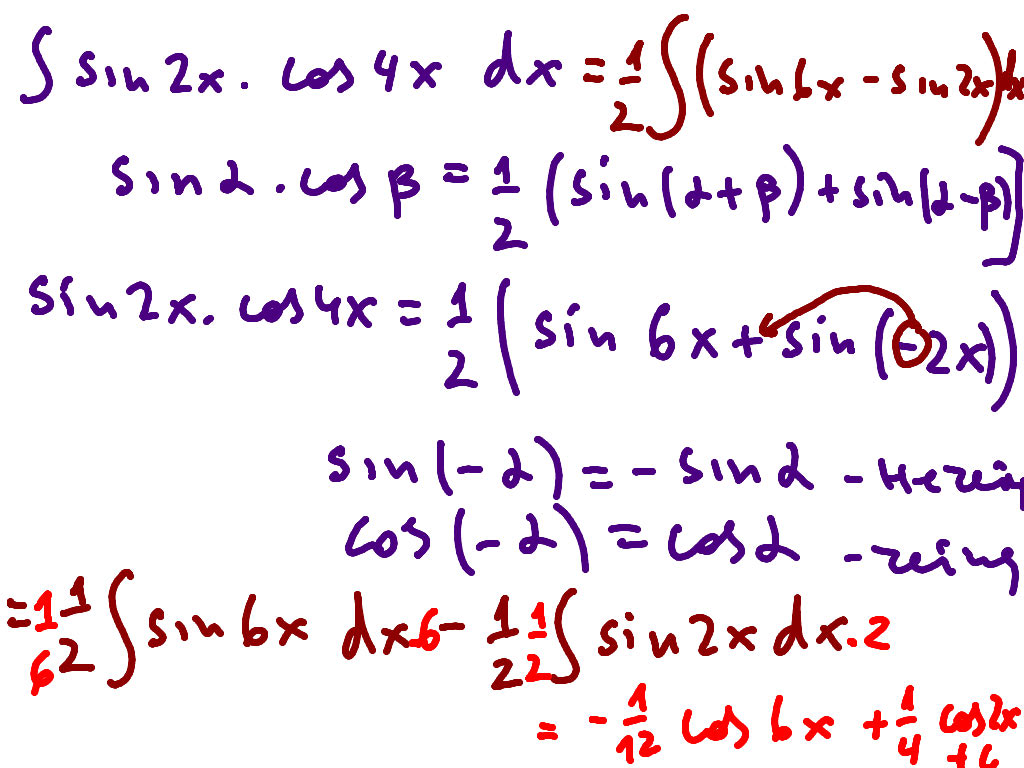 ∫ sin 2x . cos 4x dx = 1/2 ∫ (sin 6x - sin 2x) dx
sin α . cos β = 1/2 (sin(α+β) + sin(α-β)]
sin 2x . cos 4x = 1/2 (sin 6x + sin (-2x))
sin(-α) = - sin α -
cos (-α) = cos α -
= 1/6 1/2 ∫ sin 6x dx.6 - 1/2 1/2 ∫ sin 2x dx.2
= - 1/12 cos 6x + 1/4 cos 2x
+ C